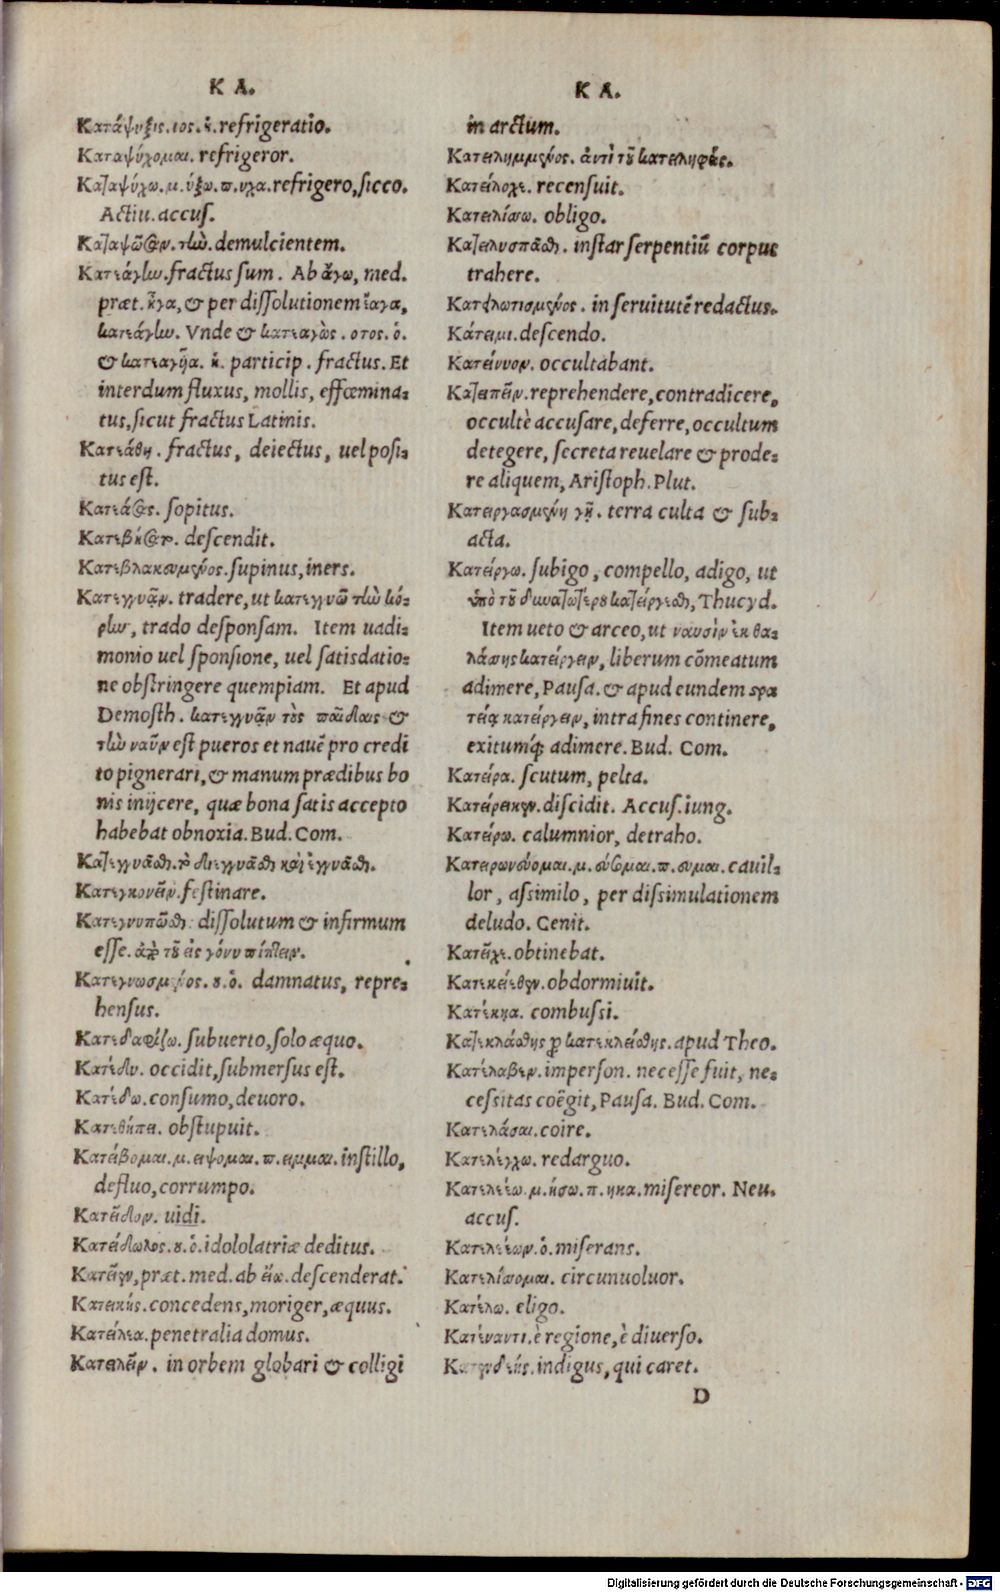 K A.
Κατάψυξις.ιος.ἡ.refrigeratio.
Καταψύχομαι. refrigeror.
Καταψύχω.μ.ύξω.π.υχα.refrigero,ſicco.
Actiu. accuſ.
demulcientem.
Κατεάγην.fractus ſum. Ab ἄγω, med.
præt. ἦγα, & per diſſolutionem ἔαγα,
κατεάγην. Vnde & κατεαγὼς. οτος. ὁ.
& κατεαγῆα. ἡ. particip. fractus. Et
interdum fluxus, mollis, effœmina=
tus, ſicut fractus Latinis.
Κατεάθη. fractus, deiectus, uel poſi=
tus eſt.
ſopitus.
Κατεβήσατο. deſcendit.
Κατεβλακευμένος.ſupinus,iners.
Κατεγγυᾷν. tradere, ut κατεγγυῶ τὴν κό=
ρην, trado desponſam. Item uadi=
monio uel ſponſione, uel ſatisdatio=
ne obſtringere quempiam. Et apud
Demoſth. κατεγγυᾷν τοὺς παῖδας &
τὴν ναῦν eſt pueros et nauē pro credi
to pignerari, & manum prædibus bo
nis inijcere, quæ bona ſatis accepto
habebat obnoxia. Bud. Com.
Κατεγγυᾶσθαι. τὸ διεγγυᾶσθαι καὶ ἐγγυᾶσθαι.
Κατεγκονεῖν.feſtinare.
Κατεγνυπῶσθαι. diſſolutum & infirmum
eſſe. ἀπὸ τοῦ εἰς γόνυ πίπτειν.
Κατεγνωσμένος.ου.ὁ. damnatus, repre=
henſus.
Κατεδαφίζω. ſubuerto, ſolo æquo.
Κατέδυ. occidit, ſubmerſus eſt.
Κατέδω.conſumo, deuoro.
Κατεθήπει. obſtupuit.
Κατείβομαι.μ.ειψομαι.π.ειμμαι.inſtillo,
defluo, corrumpo.
Κατεῖδον. uidi.
Κατείδωλος.ου.ὁ.idololatriæ deditus.
præt. med. ab deſcenderat.
Κατεικής.concedens, moriger, æquus.
Κατείλια.penetralia domus.
Κατειλεῖν. in orbem globari & colligi
K A.
in arctum.
Κατειλημμένος. ἀντὶ τοῦ κατειληφώς.
Κατείλοχε. recenſuit.
Κατειλίσσω. obligo.
Κατειλυσπᾶσθαι. inſtar ſerpentiū corpus
trahere.
Κατειλωτισμένος. in ſeruitutē redactus.
Κάτειμι.deſcendo.
Κατείνυον. occultabant.
Κατειπεῖν.reprehendere, contradicere,
occultè accuſare, deferre, occultum
detegere, ſecreta reuelare & prode=
re aliquem, Ariſtoph. Plut.
Κατειργασμένη γῆ. terra culta & ſub=
acta.
Κατείργω. ſubigo, compello, adigo, ut
ὑπὸ τοῦ δυνατωτέρου κατείργεσθαι, Thucyd.
Item ueto & arceo, ut ναυσὶν ἐκ θα=
λάσσης κατείργειν, liberum cōmeatum
adimere, Pauſa. & apud eundem στρα
τείᾳ κατείργειν, intra fines continere,
exitumq́; adimere. Bud. Com.
Κατείρα. ſcutum, pelta.
Κατείρεικεν.diſcidit. Accuſ. iung.
Κατείρω. calumnior, detraho.
Κατειρωνεύομαι.μ.εύσομαι.π.ευμαι.cauil=
lor, aſsimilo, per diſsimulationem
deludo. Genit.
Κατεῖχε.obtinebat.
obdormiuit.
Κατέκηα. combuſsi.
Κατεκλάσθης pro κατεκλείσθης.apud Theo.
Κατέλαβεν.imperſon. neceſſe fuit, ne=
ceſsitas coëgit, Pauſa. Bud. Com.
Κατελάσαι.coire.
Κατελέγχω. redarguo.
Κατελεέω.μ.ήσω.π.ηκα.miſereor. Neu.
accuſ.
Κατελεέων.ὁ.miſerans.
Κατελίσσομαι. circunuoluor.
Κατέλω. eligo.
Κατέναντι.è regione, è diuerſo.
Κατενδεής.indigus, qui caret.
D
Digitalisierung gefördert durch die Deutsche Forschungsgemeinschaft - DFG